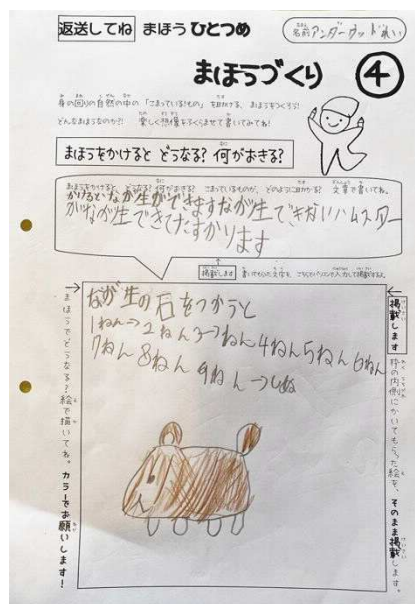 返送してね まほう ひとつめ
名前 アンダーウッド
まほうづくり ④
身の回りの自然の中の 「こまっている!もの」 を助ける、まほうをつくろう!
どんなまほうなのか?! 楽しく想像をふくらませて書いてみてね!
まほうをかけると どうなる? 何がおきる?
まほうをかけると、どうなる? 何がおきる? こまっているものが、どのように助かる? 文章で書いてね。
かけるとなが生ができますなが生できないハムスター
がなが生できてたすかります
掲載します
なが生の石をつかうと
1ねん→2ねん3→ねん4ねん5ねん6ねん
7ねん8ねん
9ねん→しぬ
まほうでどうなる?絵で描いてね。カラーでお願いします!
掲載します 枠の内側にかいてもらった絵を、そのまま掲載します。